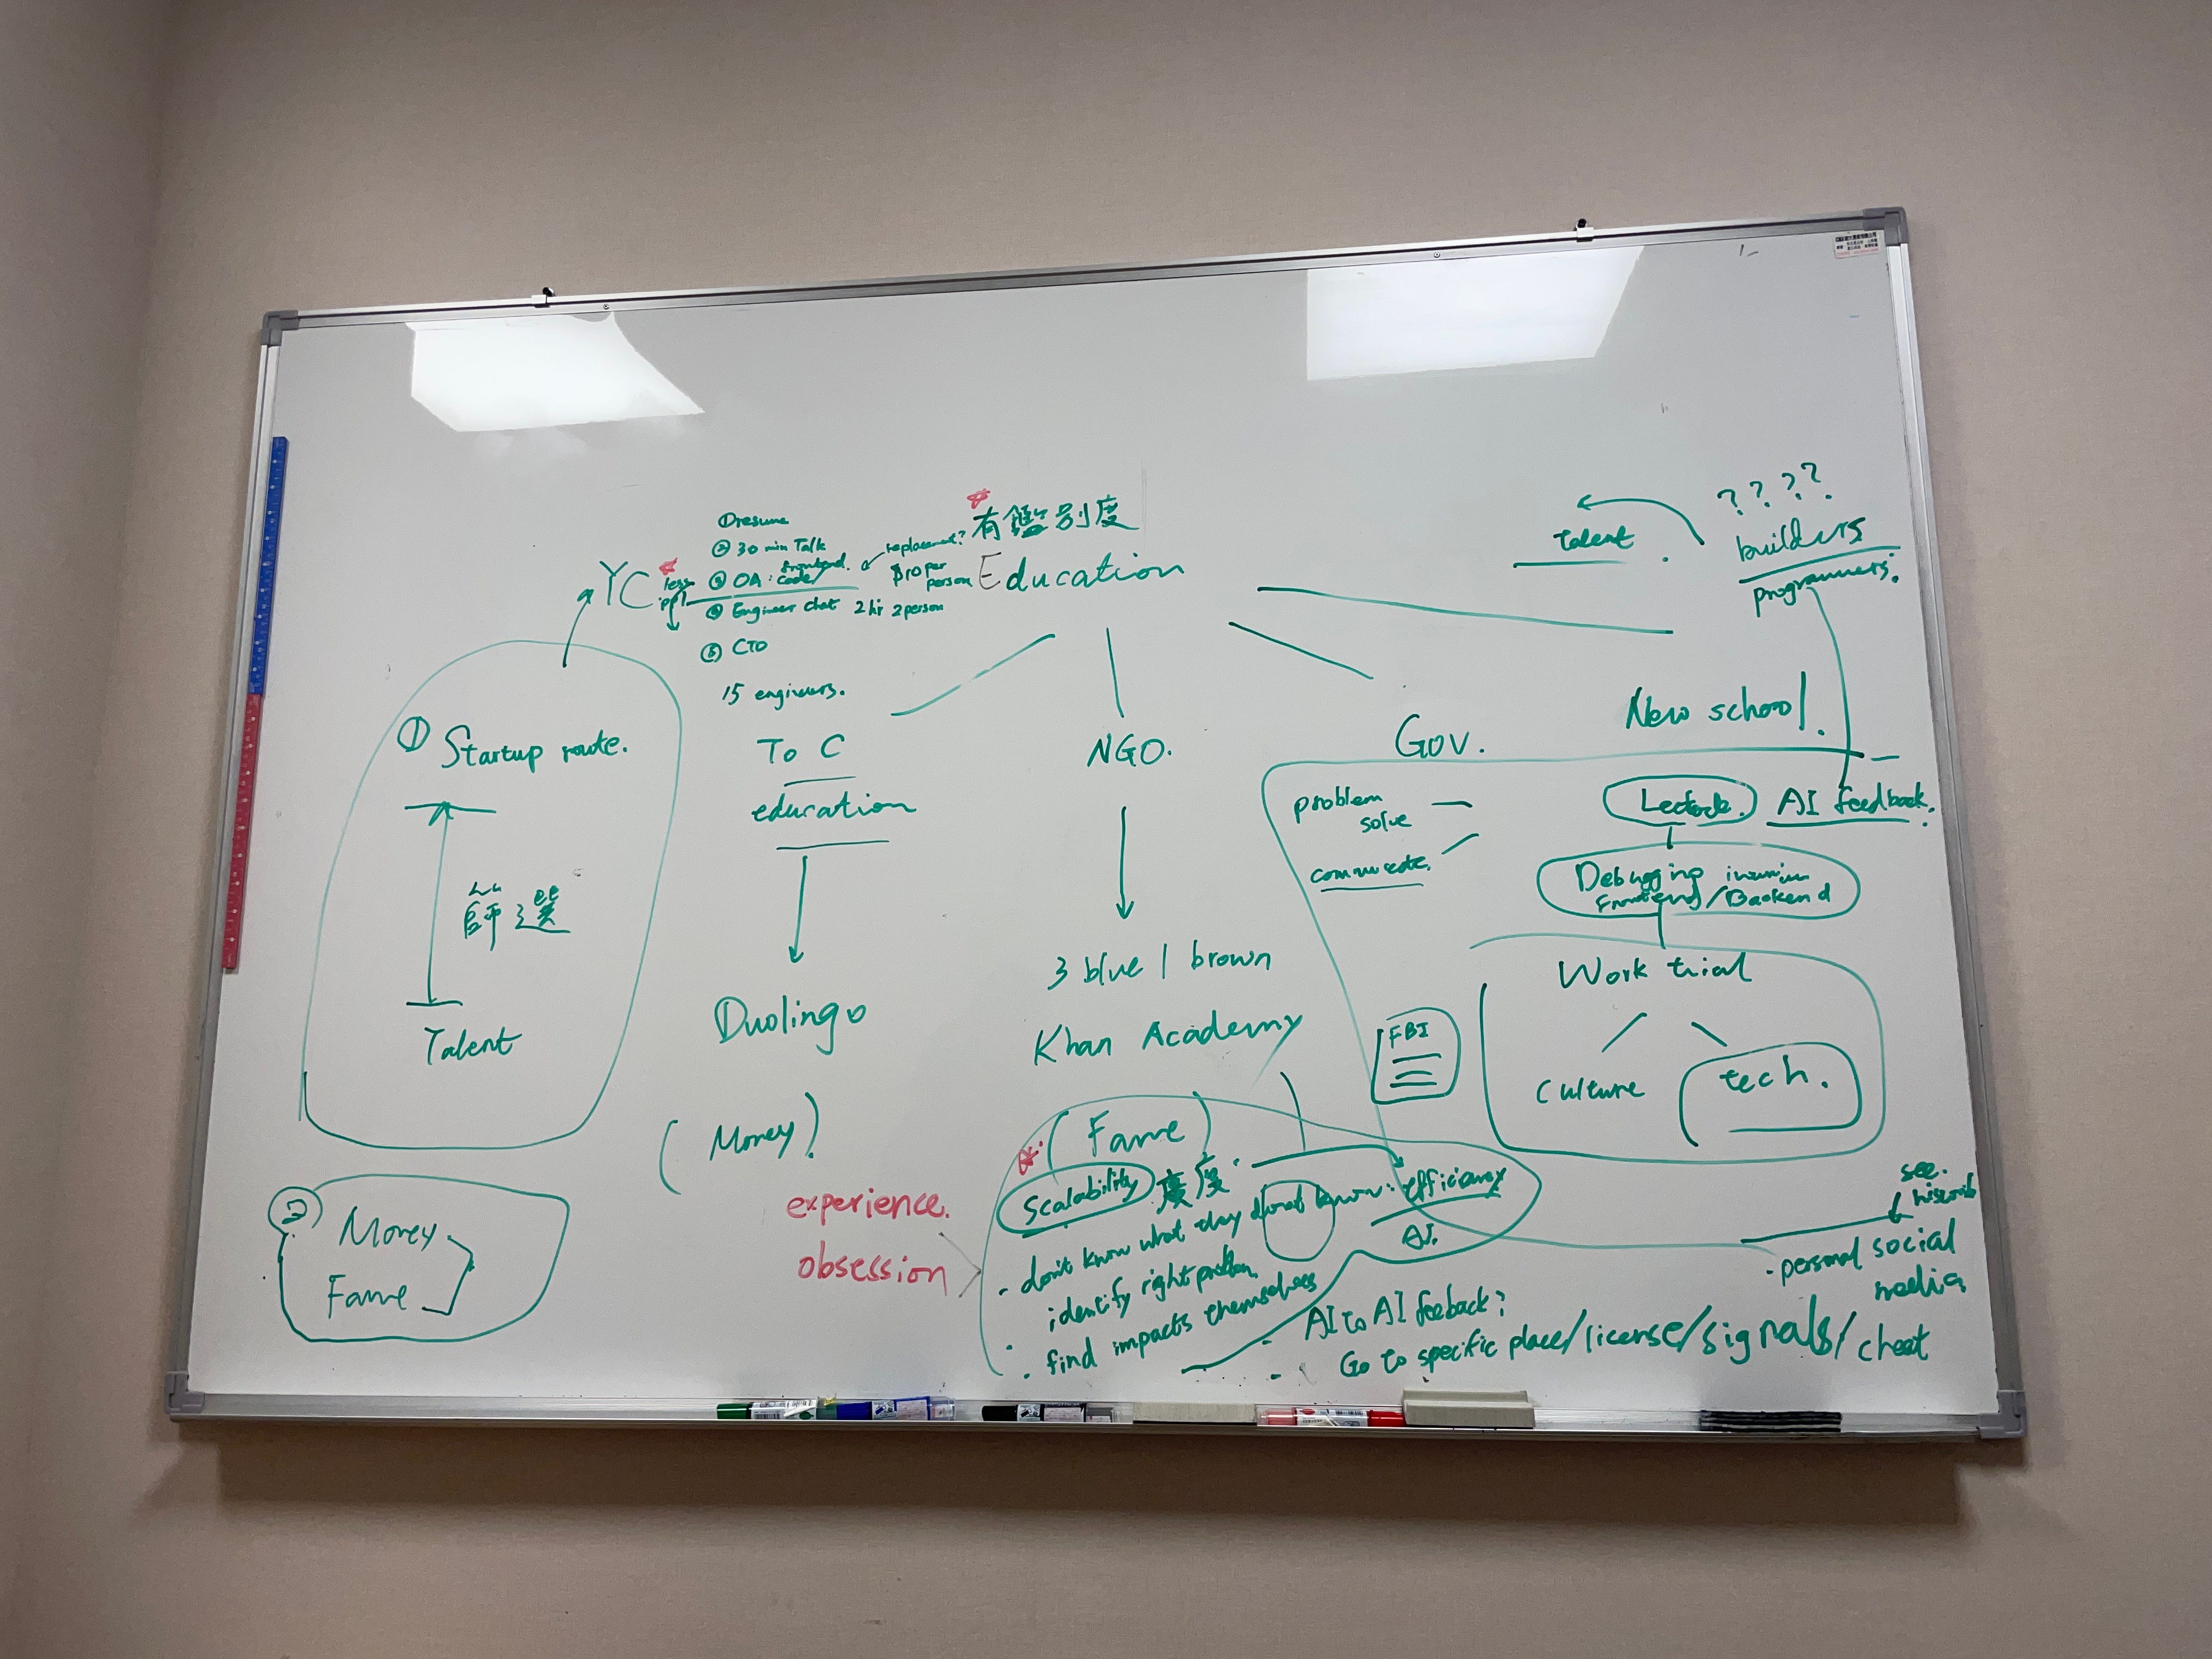 ? ? ? ?
builders
programmers.
talent
有鑑別度
Education
①resume
② 30 min Talk
③ OA: frontend. code/
replacement?
$10 per person
④ Engineer chat 2 hr 2 person
⑤ CTO
15 engineers.
YC
less ppl
① Startup route.
篩選
Talent
② Money
Fame
To C
education
Duolingo
(Money)
NGO.
3 blue 1 brown
Khan Academy
(Fame)
Gov.
New school.
problem
solve
AI feedback.
Debugging
Frontend/Backend
Work trial
culture
tech.
FBI
experience.
obsession
Scalability 廣度
efficiency
AI.
- don't know what they do not know.
identify right problem
. find impacts themselves
- AI to AI feeback?
- Go to specific place/license/signals/cheat
see.
- personal social
media